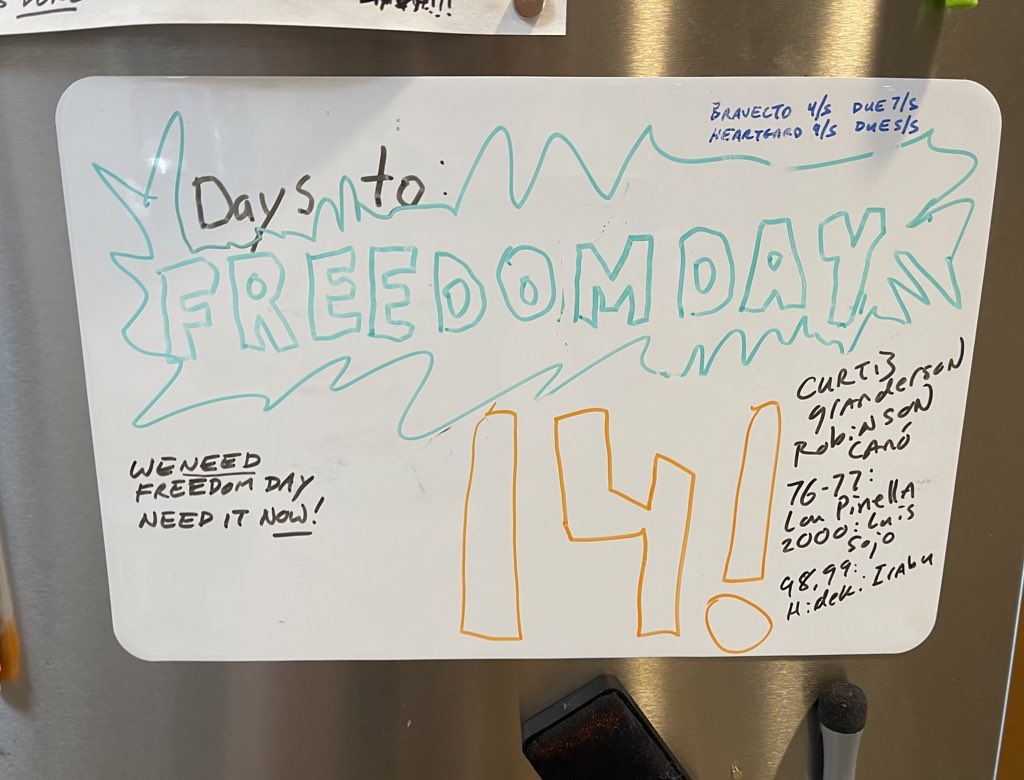 DONE
BRAVECTO 4/5 DUE 7/5
HEARTGARD 4/5 DUE 5/5
Days to:
FREEDOM DAY
14!
WE NEED
FREEDOM DAY
NEED IT NOW!
CURTIS
granderson
RobiNSON
CANÓ
76-77:
Lou PinellA
2000: Luis
Sojo
98,99:
Hideki Irabu